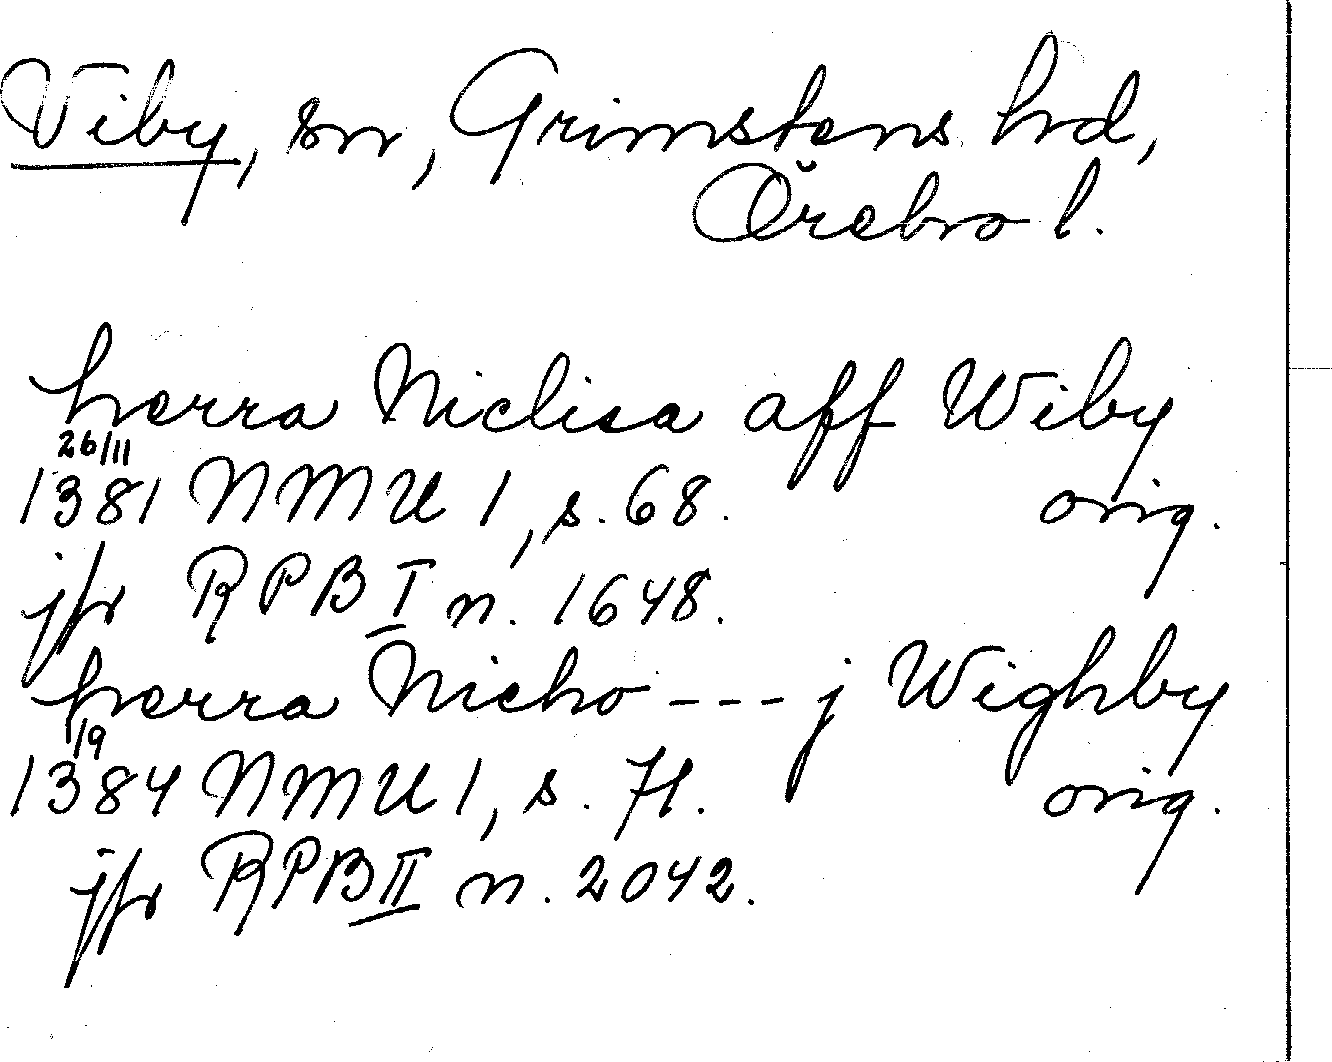 Viby, sn, Grimstens hrd,
Örebro l.
herra Niclisa aff Wiby
26/11
1381 NMU 1, s. 68. orig.
jfr RPB I n. 1648.
herra Nicho --- j Wighby
1/9
1384 NMU 1, s. 71. orig.
jfr RPB II n. 2042.